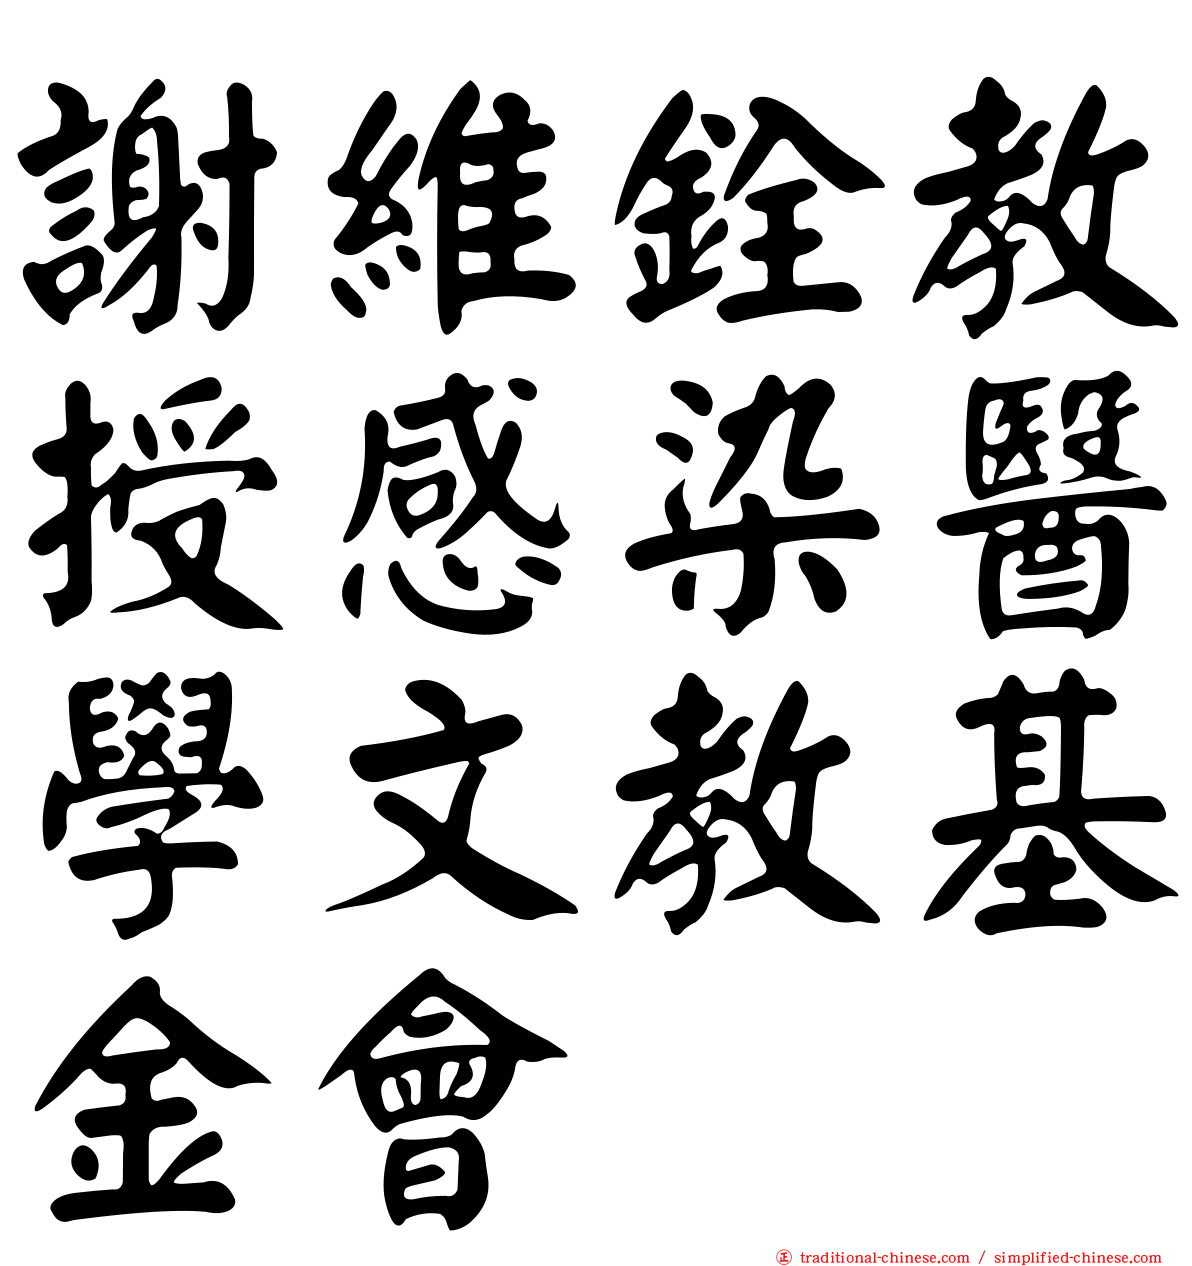 謝維銓教
授感染醫
學文教基
金會
正 traditional-chinese.com / simplified-chinese.com